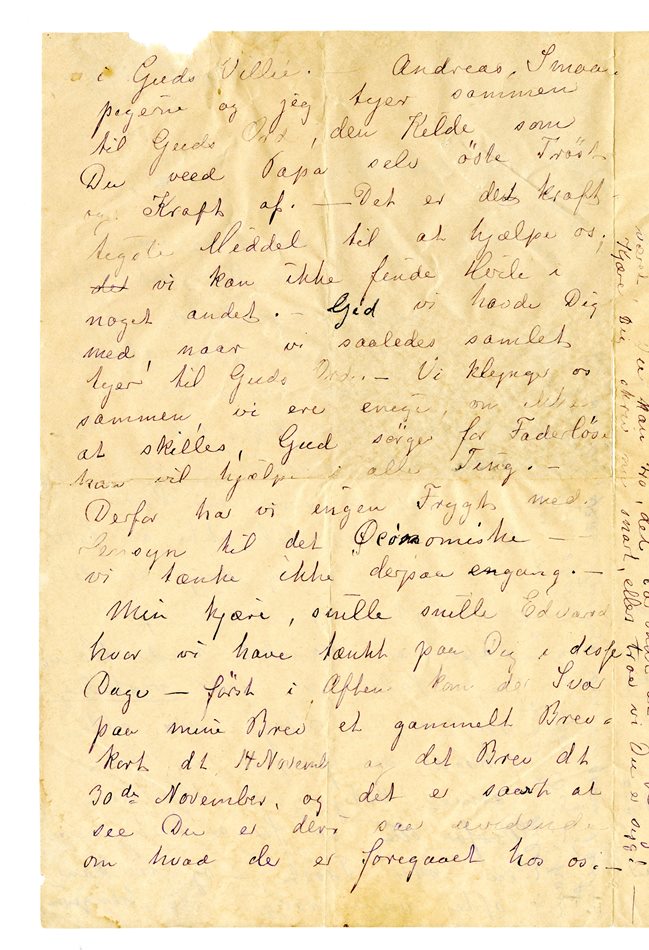 i Guds Villie. — Andreas, Smaa-
pigerne og jeg tyer sammen
til Guds Ord, den Kilde som
Du veed Papa selv øste Trøst
og Kraft af. — Det er det kraft-
tigste Middel til at hjælpe os,
det vi kan ikke finde Hvile i
noget andet. — Gid vi havde Dig
med, naar vi saaledes samlet
tyer til Guds Ord. — Vi klynger os
sammen, vi ere enige, om ikke
at skilles, Gud sørger for Faderløse
han vil hjælpe i alle Ting. —
Derfor har vi ingen Frygt med
Hensyn til det Økonomiske —
vi tænke ikke derpaa engang. —
Min kjære, snille snille Edvard
hvor vi have tænkt paa Dig i disse
Dage — først i Aften kom der Svar
paa mine Brev et gammelt Brev-
kort dt 14 Novemb og det Brev dt
30de November, og det er saart at
see Du er deri saa uvidende
om hvad der er foregaaet hos os. —
Du kan tro, det
Kjære Du skriv nu snart, ellers troe vi Du er syg! —